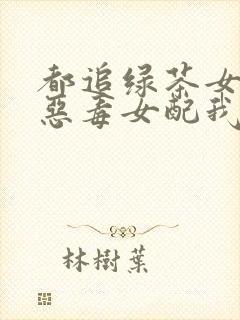 都追绿茶女
恶毒女配我
林樹葉